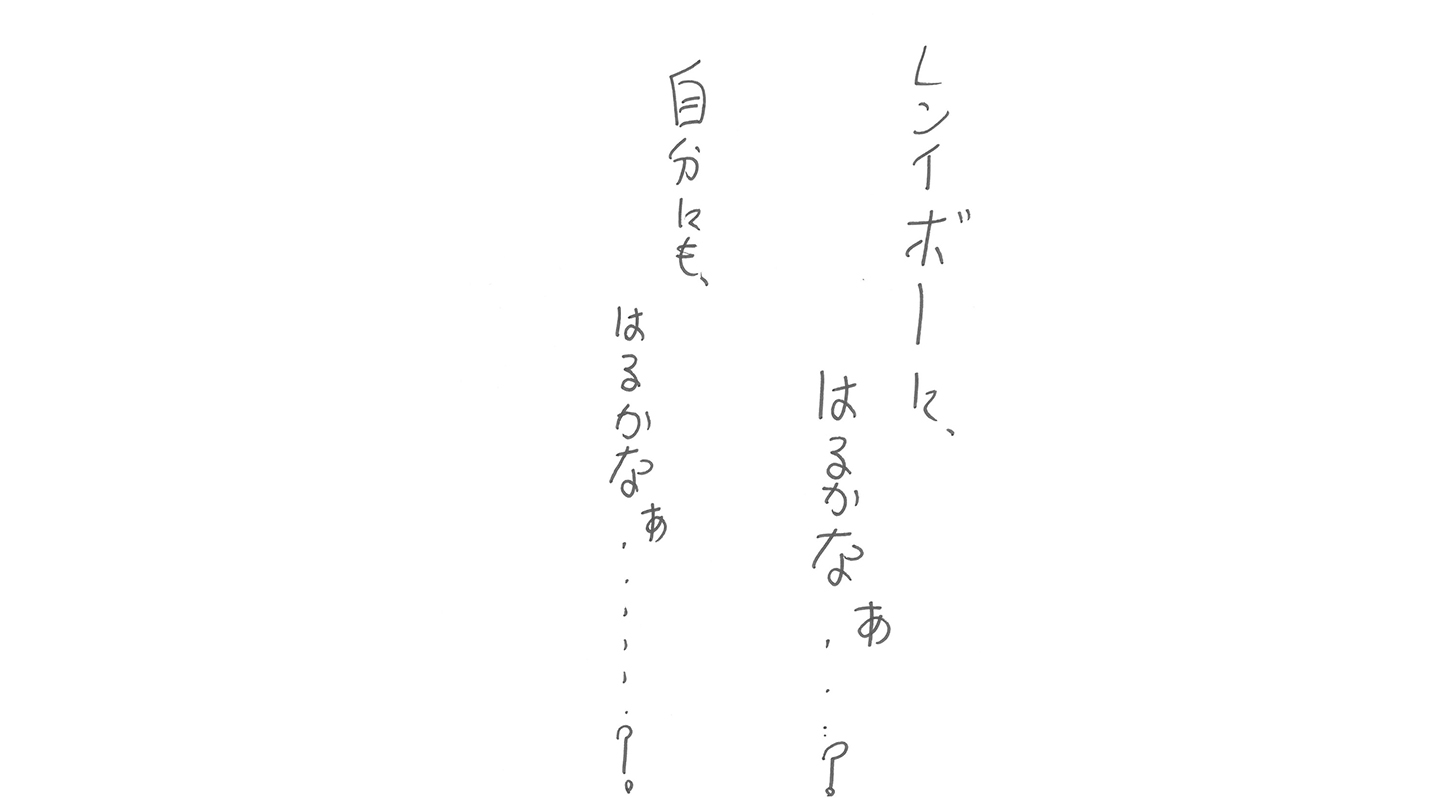 レンイボーに、
はるかなぁ・・・・?
自分にも、
はるかなぁ・・・・・・?